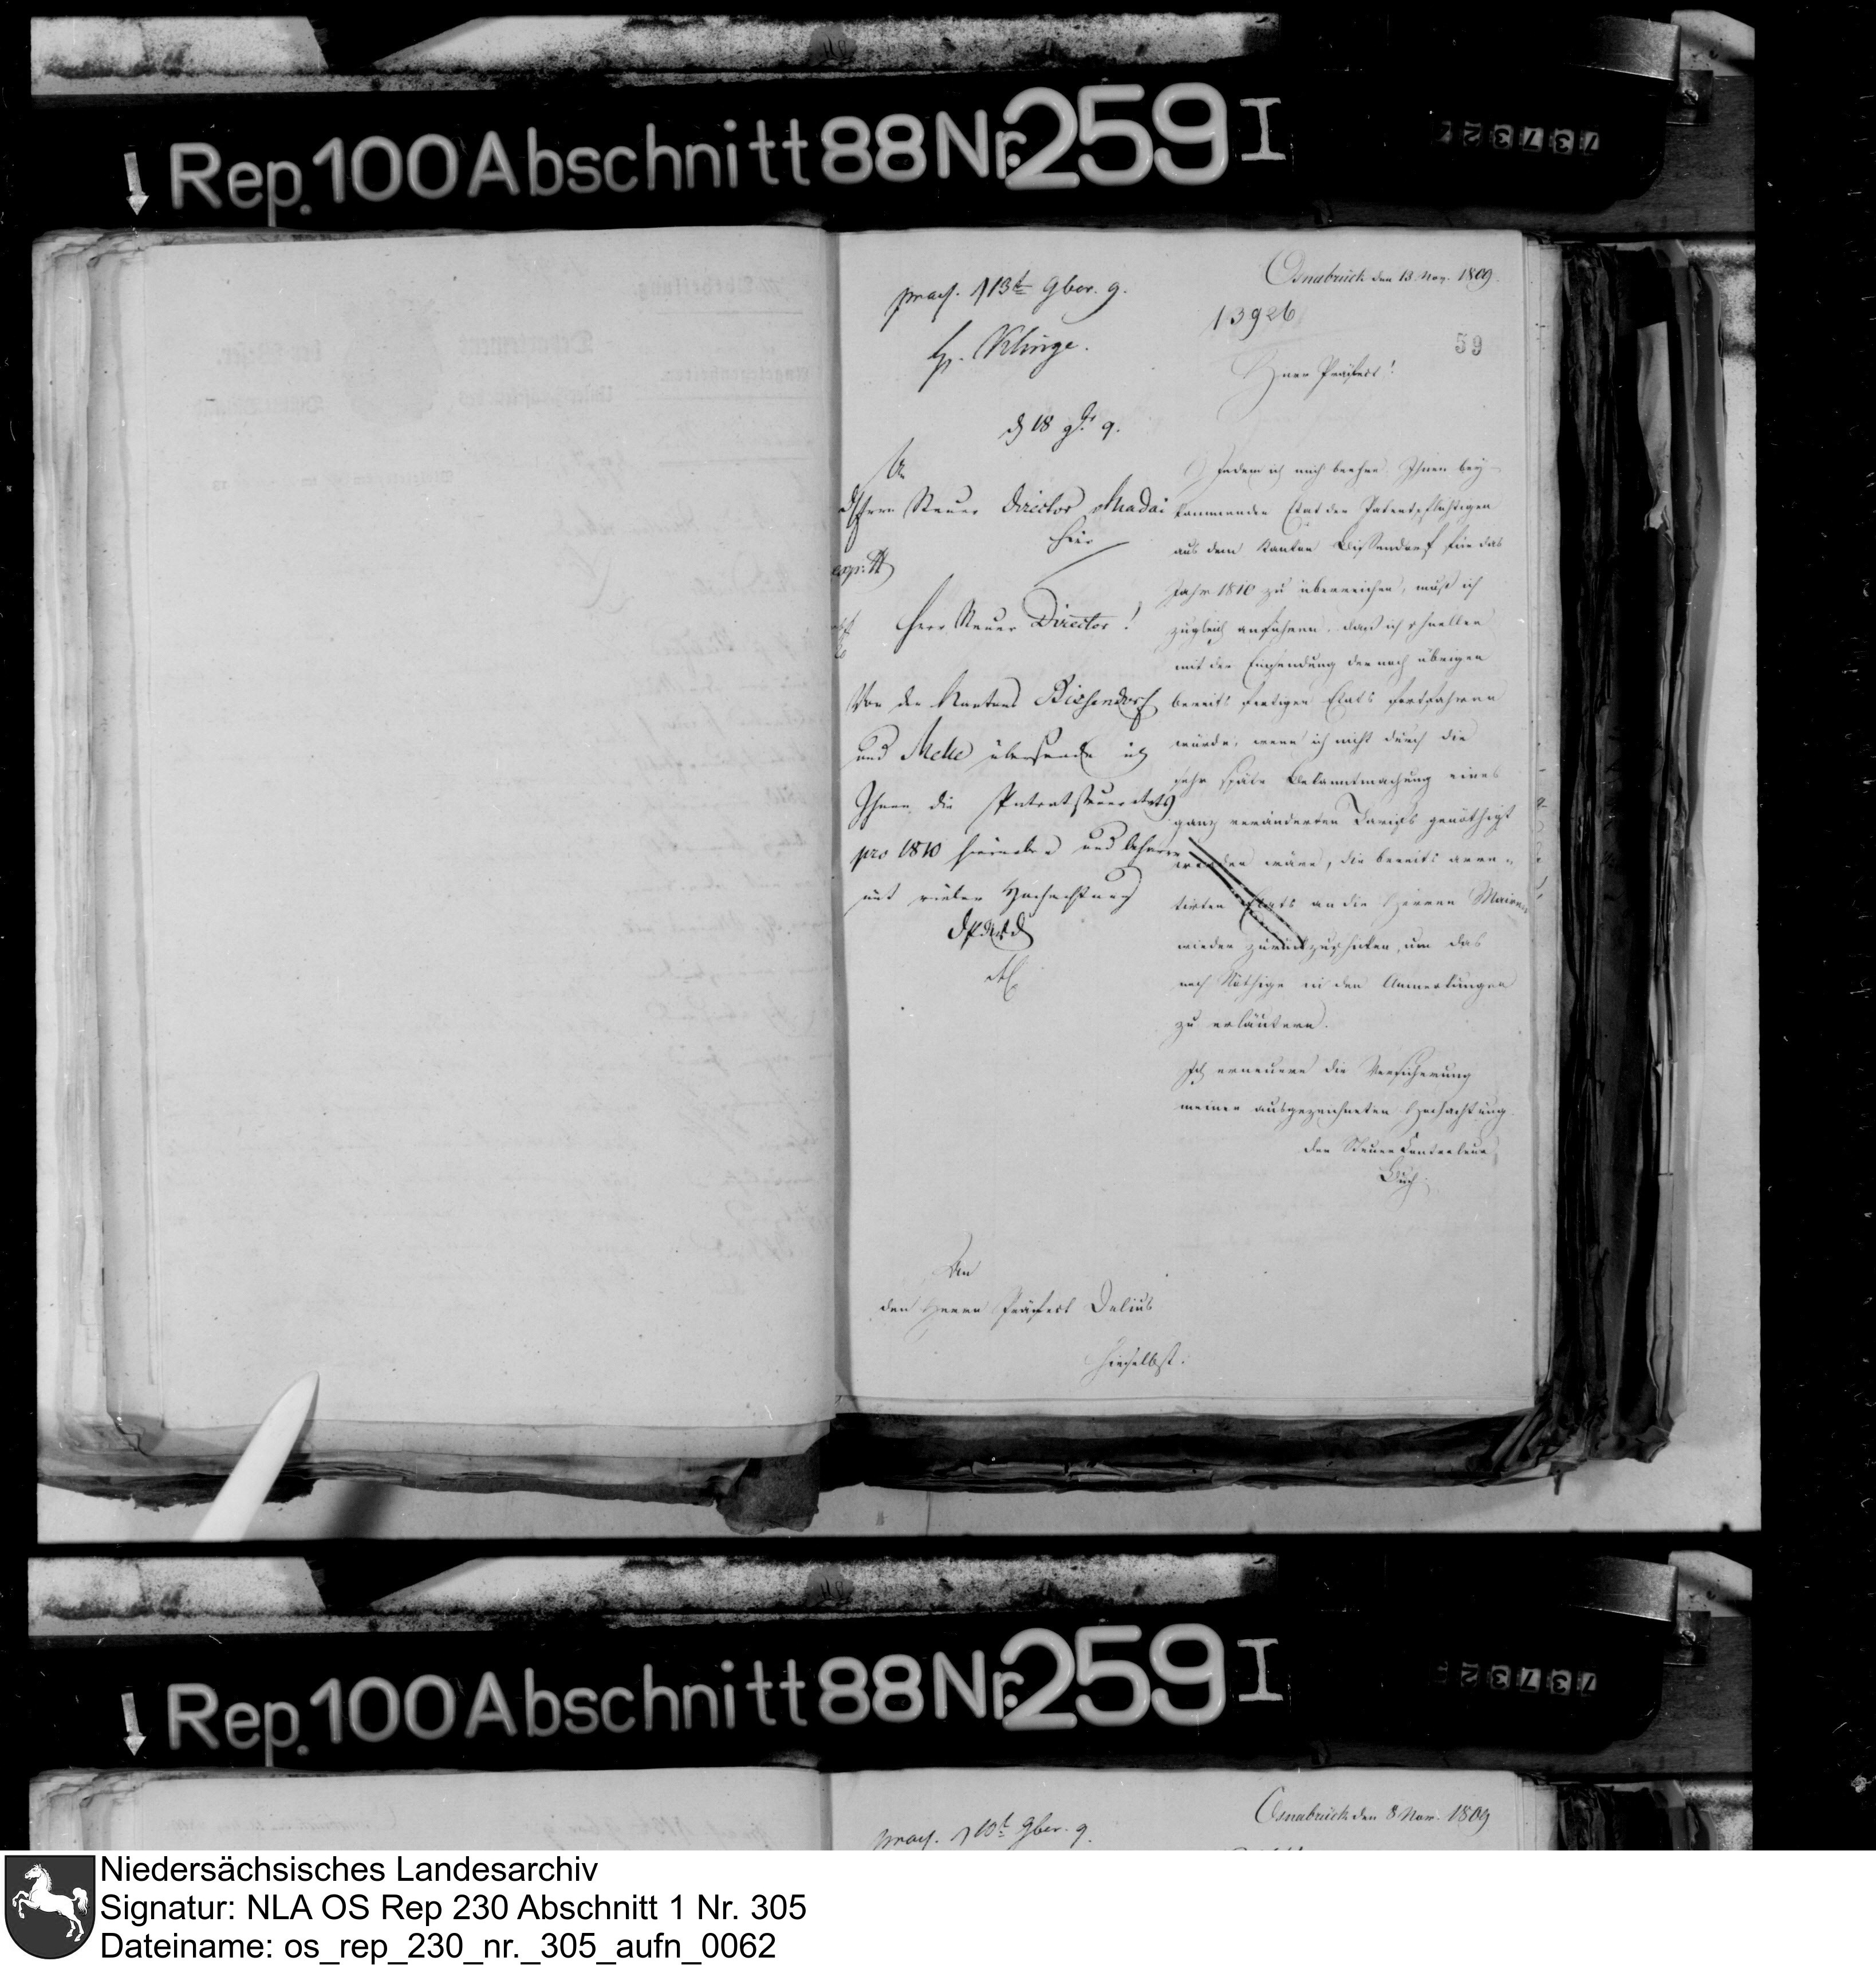 Rep. 100 Abschnitt 88 Nr. 259 I
Osnabrück den 13. Nov. 1809.
praes. d 13t 9ber. 9.
13926
59
H. Klinge.
Herr Präfect!
d 18 9br 9.
An
d Herrn Steuer Director Madai
hier
Herr Steuer Director!
Von den Kantons Bissendorf
und Melle übersende ich
Ihnen die Patentsteueretats
pro 1810 hieneben und
mit vieler Hochachtung
Indem ich mich beehre Ihnen bey-
kommenden Etat der Patentpflichtigen
aus dem Kanton Bissendorf für das
Jahr 1810 zu überreichen, muß ich
zugleich anführen, daß ich schneller
mit der Einsendung der noch übrigen
bereits fertigen Etats fortfahren
würde, wenn ich nicht durch die
sehr späte Bekanntmachung eines
ganz veränderten Tarifs genöthigt
worden wäre, die bereits
Etats an die Herren Maires
wieder zurückzuschicken, um das
noch Nöthige in den Anmerkungen
zu erläutern.
Ich erneuere die Versicherung
meiner ausgezeichneten Hochachtung.
Der Steuer Controleur
An
den Herrn Präfect Delius
hieselbst.
Rep. 100 Abschnitt 88 Nr. 259 I
Osnabrück den 8 Nov. 1809
praes. d 10t 9ber. 9.
Niedersächsisches Landesarchiv
Signatur: NLA OS Rep 230 Abschnitt 1 Nr. 305
Dateiname: os_rep_230_nr._305_aufn_0062